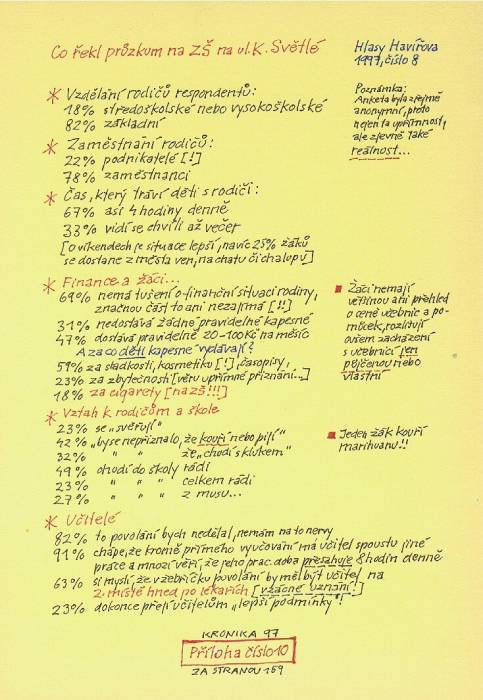 Co řekl průzkum na ZŠ na ul. K. Světlé
Hlasy Havířova
1997, číslo 8
Poznámka:
Anketa byla zřejmě
anonymní, proto
nejen ta upřímnost,
ale zjevně také
reálnost...
* Vzdělání rodičů respondentů:
18% středoškolské nebo vysokoškolské
82% základní
* Zaměstnání rodičů:
22% podnikatelé [!]
78% zaměstnanci
* Čas, který tráví děti s rodiči:
67% asi 4 hodiny denně
33% vidí se chvíli až večer
[o víkendech je situace lepší, navíc 25% žáků
se dostane z města ven, na chatu či chalupu]
* Finance a žáci...
69% nemá tušení o finanční situaci rodiny,
značnou část to ani nezajímá [!!]
31% nedostává žádné pravidelné kapesné
47% dostává pravidelně 20-100Kč na měsíc
A za co děti kapesné vydávají?
59% za sladkosti, kosmetiku [!], časopisy,
23% za zbytečnosti [věru upřímné přiznání...]
18% za cigarety [na ZŠ!!!]
■ Žáci nemají
většinou ani přehled
o ceně učebnic a po-
můcek, rozlišují
ovšem zacházení
s učebnicí jen
půjčenou nebo
vlastní
* Vztah k rodičům a škole
23% se „svěřují“
42% „by se nepřiznalo, že kouří nebo pijí“
32% " " že „chodí s klukem“
49% chodí do školy rádi
23% " " " celkem rádi
27% " " " z musu...
■ Jeden žák kouří
marihuanu!!
* Učitelé
82% to povolání bych nedělal, nemám na to nervy
91% chápe, že kromě přímého vyučování má učitel spoustu jiné
práce a mnozí věří, že jeho prac. doba přesahuje 8 hodin denně
63% si myslí, že v žebříčku povolání by měl být učitel na
2. místě hned po lékařích [vzácné uznání!]
23% dokonce přejí učitelům „lepší podmínky“!
KRONIKA 97
Příloha číslo 10
ZA STRANOU 159